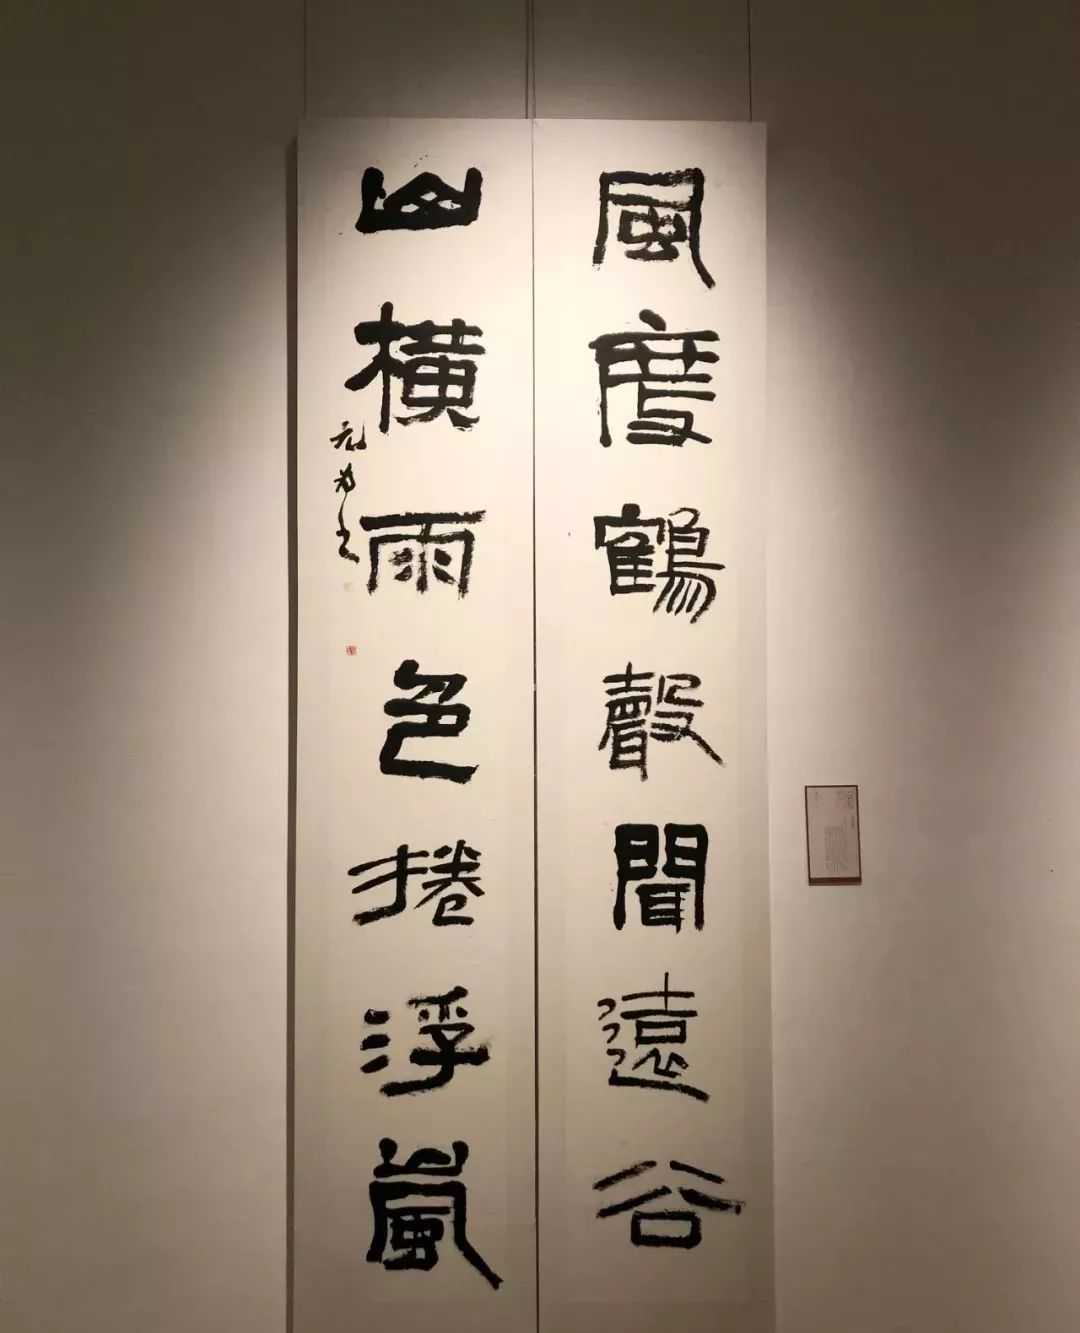 風度鶴聲聞遠谷
山橫雨色捲浮嵐